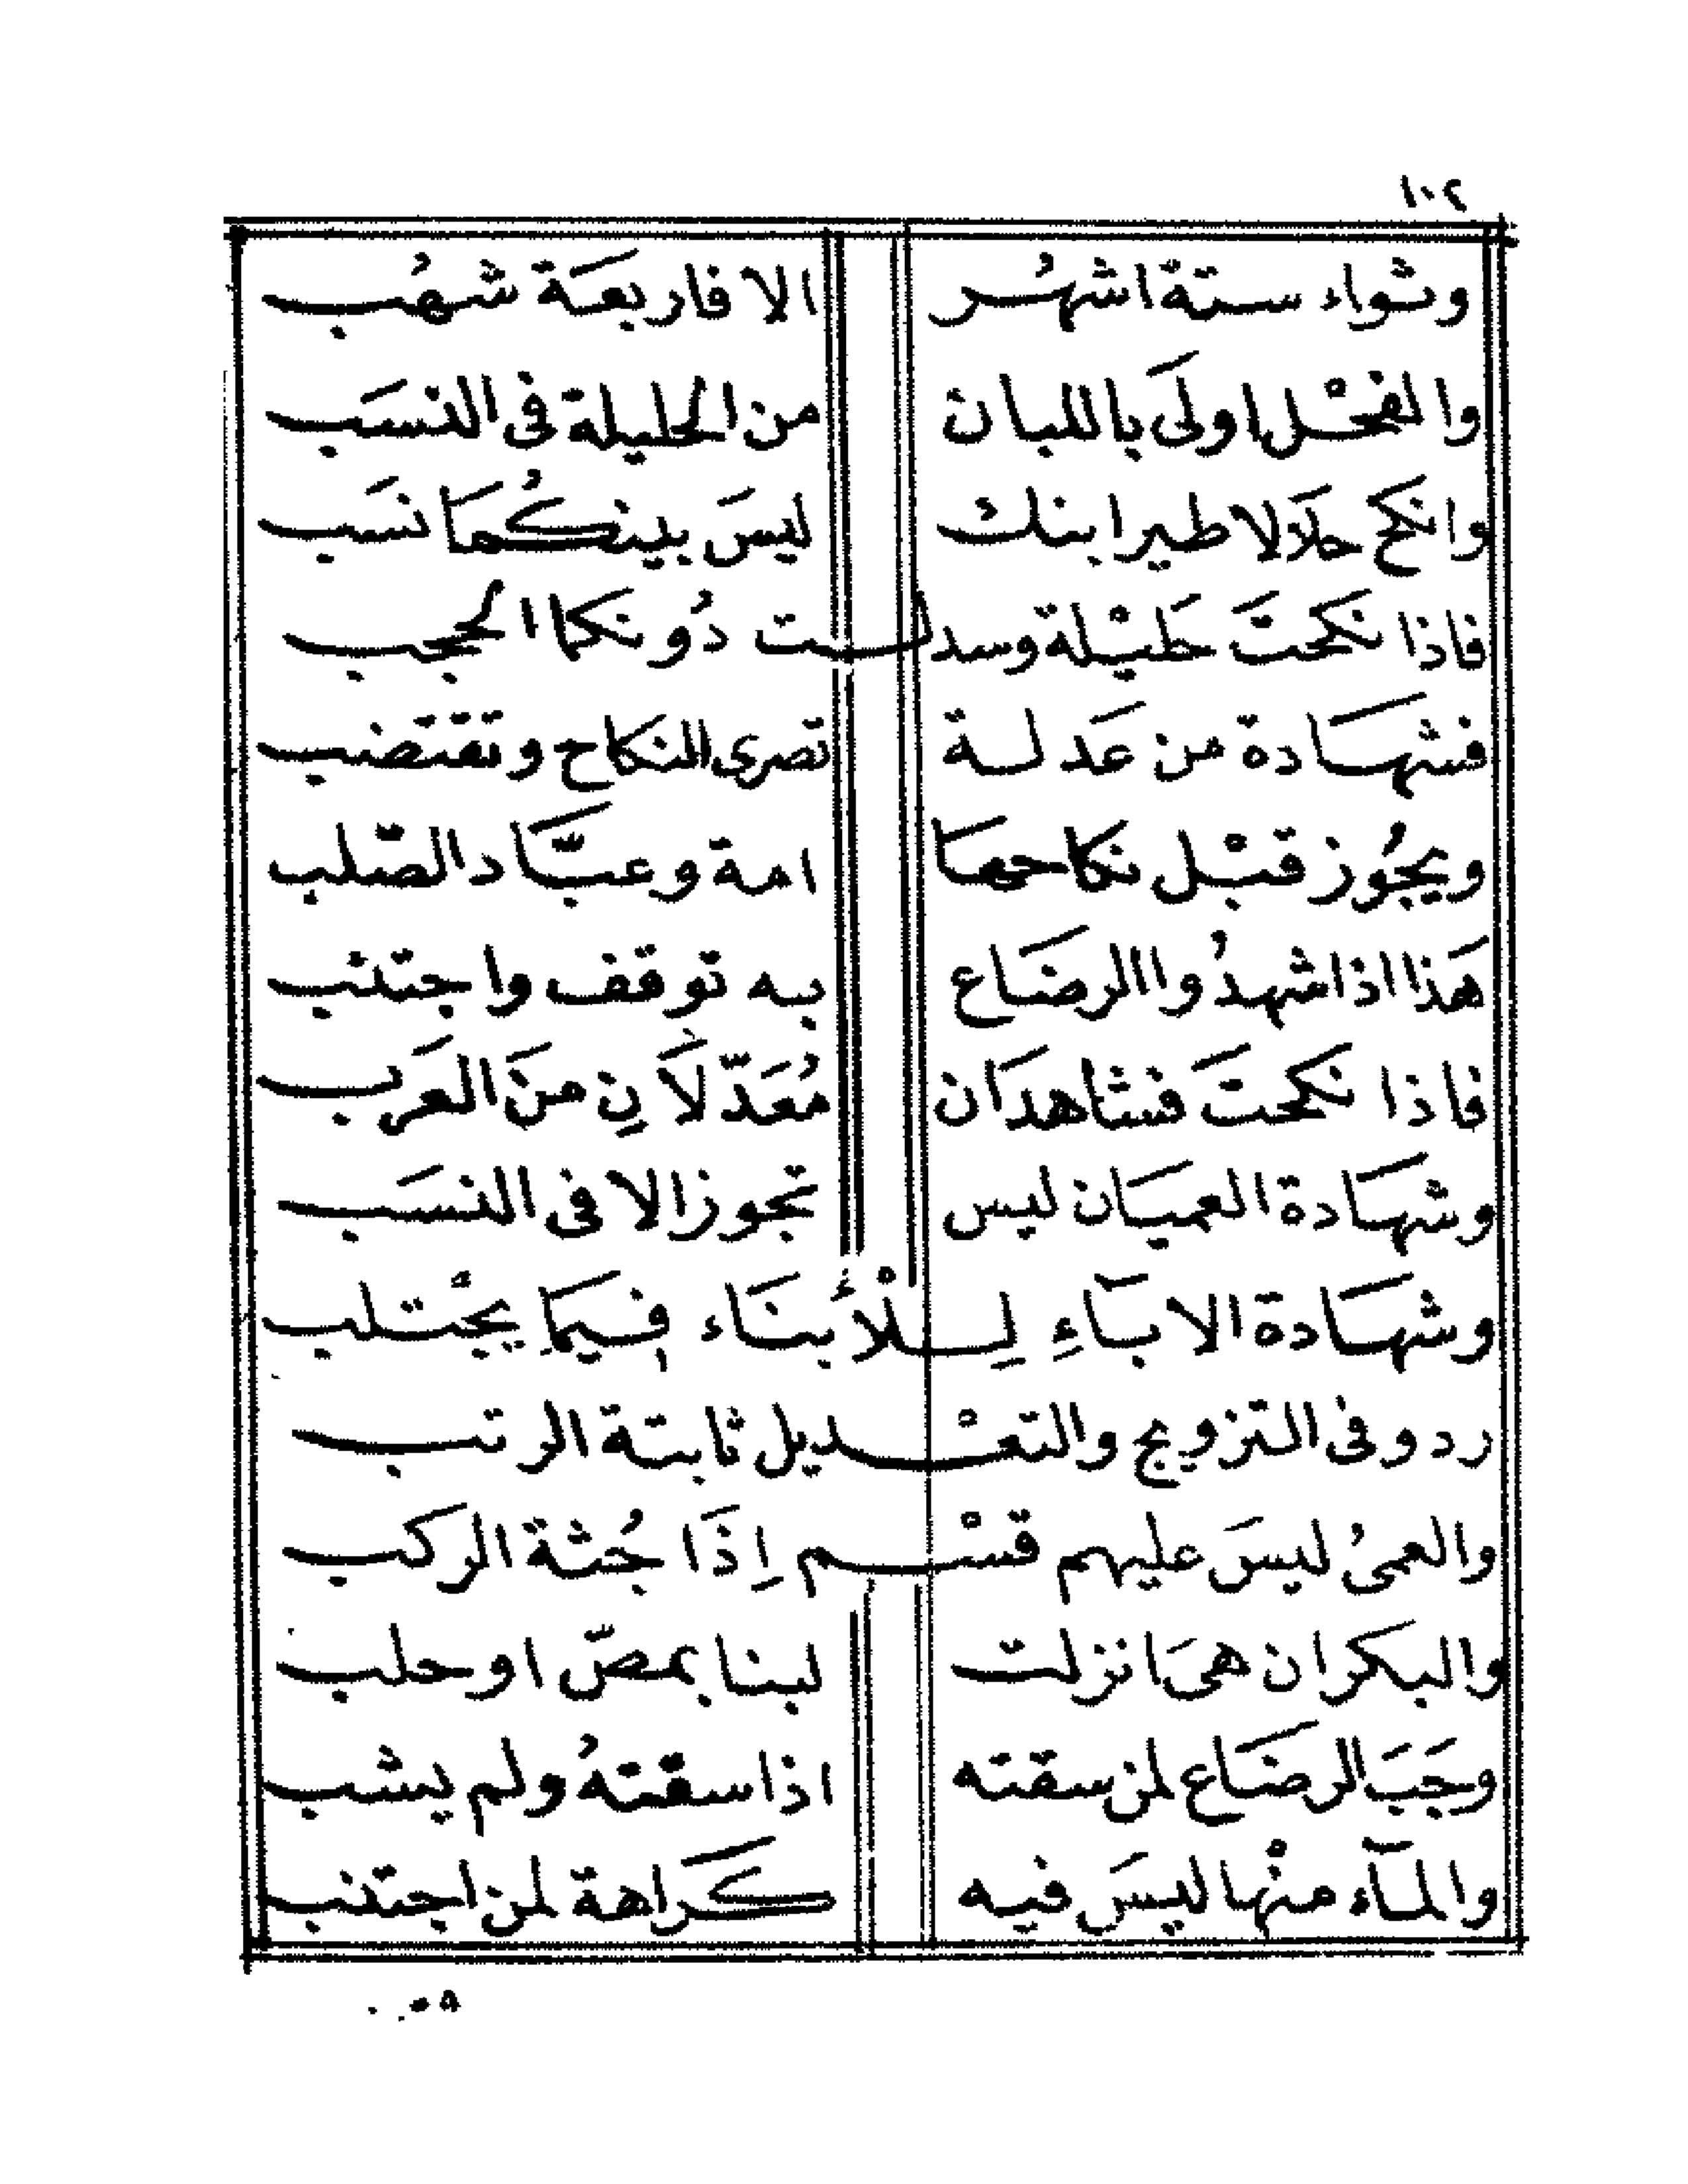 ١٠٢
وثواء ستة اشهُر الا فاربعَة شهُب
والفحْل اولَى باللبان من الحليلة فى النسَب
وانكح حلَالا طيرا بنك ليسَ بينكُمَا نسَب
فاذا نكحتَ حَليْلة وسدلت دُونكما الحجب
فشهَادة من عَدلة تصرى النكاح وتقتضب
ويجُوز قبْل نكاحهَا امة وعبَّاد الصّلب
هَذا اذا شهدُوا الرضَاع به توقف واجتنب
فاذا نكحتَ فشاهدَان مُعَدّلَانِ منَ العَرَب
وشهَادة العميَان ليس تجوز الا فى النسَب
وشهَادة الابآءِ لِلْأَبنَاء فيمَا يجْتلب
رد وفى التزويج والتعْديل ثابتة الرتب
والعمىُ ليسَ عليهم قسْم إِذَا جُثة الركب
والبكر ان هىَ انزلت لبنا بمصّ او حلب
وجَبَ الرضَاع لمن سقته اذا سقتهُ ولم يشب
والمآء منْها ليسَ فيه كَراهة لمن اجتنب